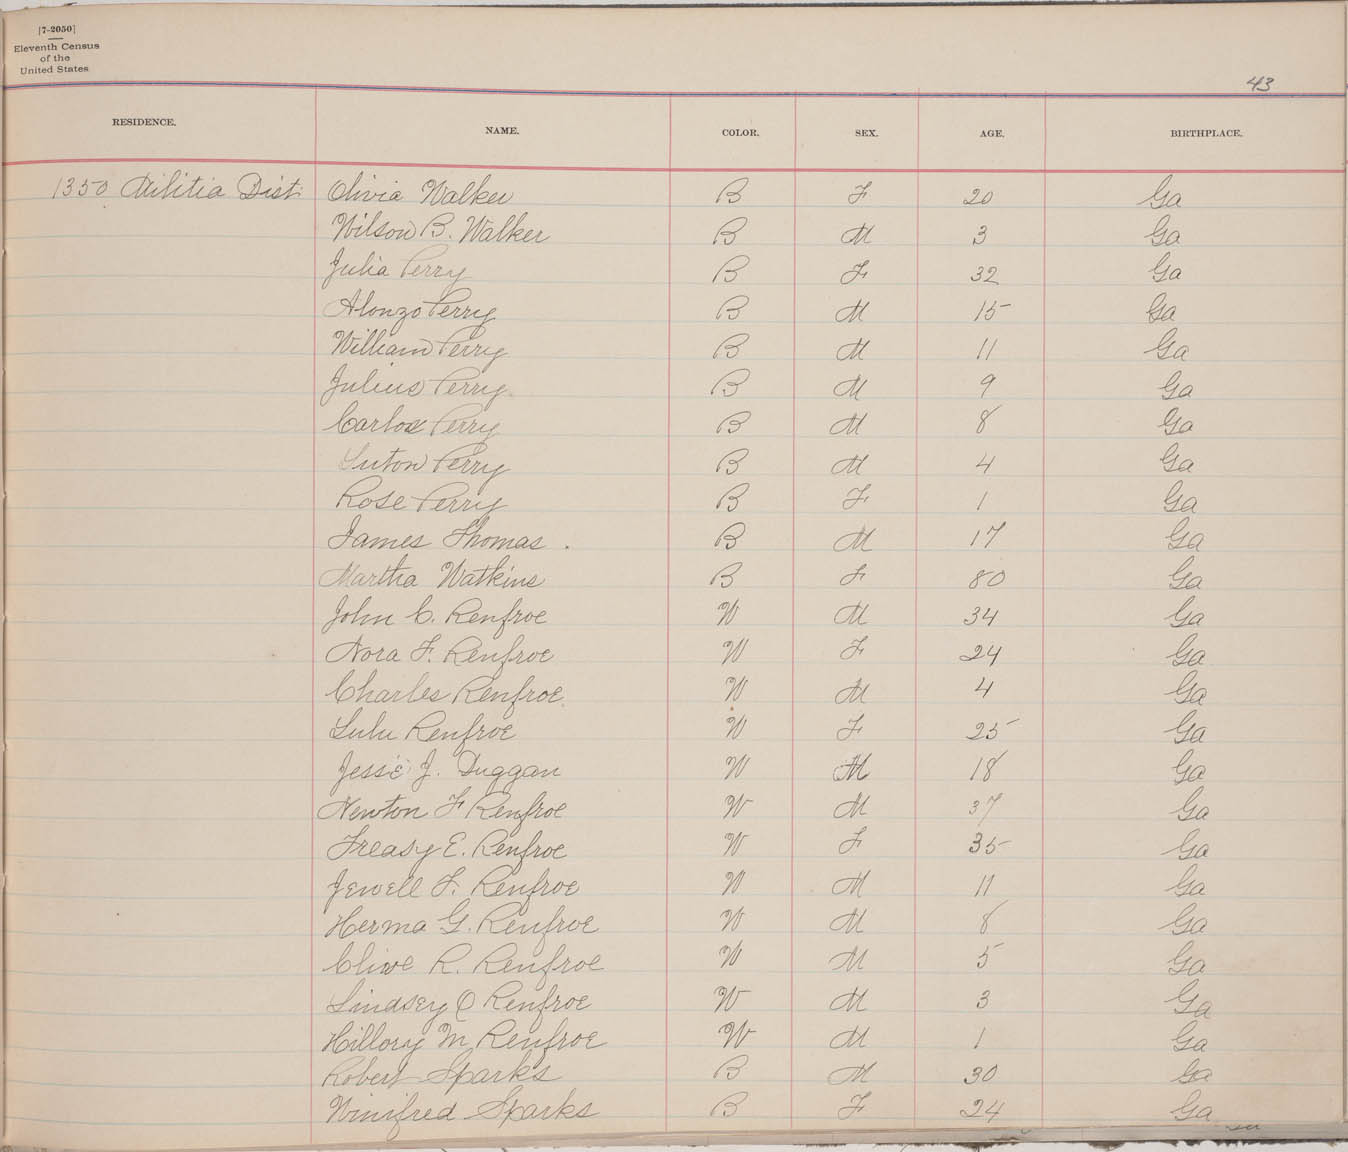 [7-2050]
Eleventh Census
of the
United States
43
RESIDENCE. NAME. COLOR. SEX. AGE. BIRTHPLACE.
1350 Militia Dist. Olivia Walker B F 20 Ga
Wilson B. Walker B M 3 Ga
Julia Perry B F 32 Ga
Alonzo Perry B M 15 Ga
William Perry B M 11 Ga
Julius Perry B M 9 Ga
Carlos Perry B M 8 Ga
Luton Perry B M 4 Ga
Rose Perry B F 1 Ga
James Thomas . B M 17 Ga
Martha Watkins B F 80 Ga
John C. Renfroe W M 34 Ga
Nora F. Renfroe W F 24 Ga
Charles Renfroe W M 4 Ga
Lulu Renfroe W F 25 Ga
Jesse J. Duggan W M 18 Ga
Newton F Renfroe W M 37 Ga
Treasy E. Renfroe W F 35 Ga
Jewell F. Renfroe W M 11 Ga
Herma G. Renfroe W M 8 Ga
Clive R. Renfroe W M 5 Ga
Lindsey O Renfroe W M 3 Ga
Hillory M Renfroe W M 1 Ga
Robert Sparks B M 30 Ga
Winifred Sparks B F 24 Ga